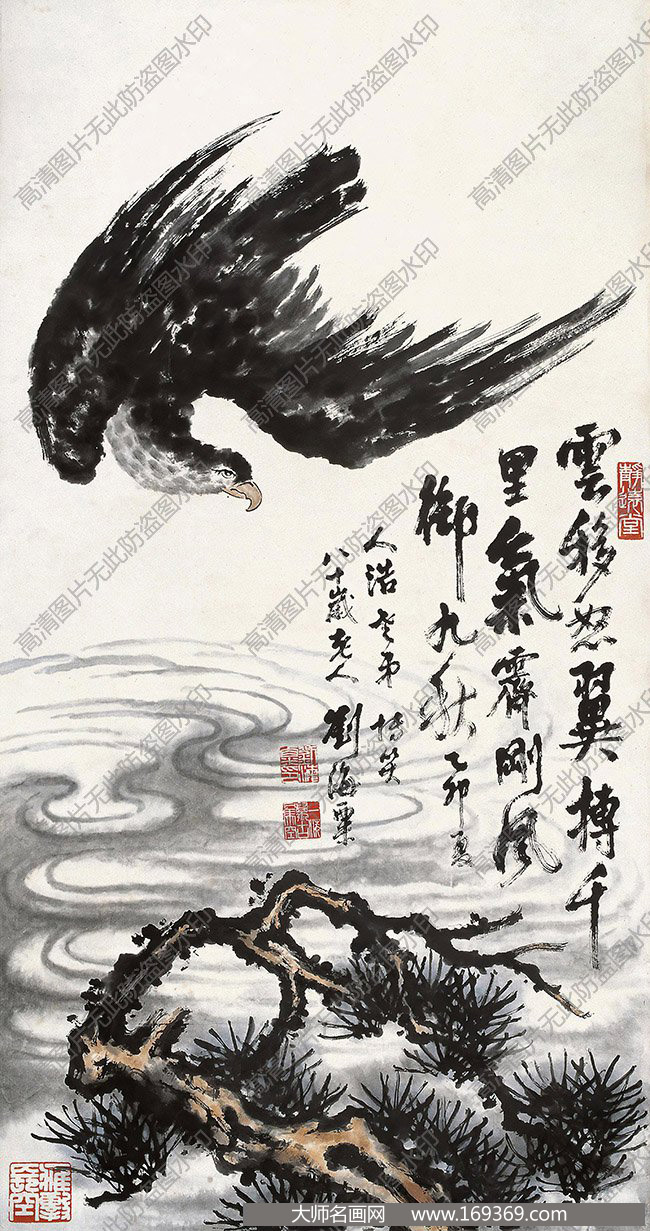 雲移怒翼搏千
里氣霽剛風
御九秋 乙卯夏
人浩老弟博笑
八十歲老人劉海粟
靜遠堂
高清图片无此防盗图水印
大师名画网 www.169369.com